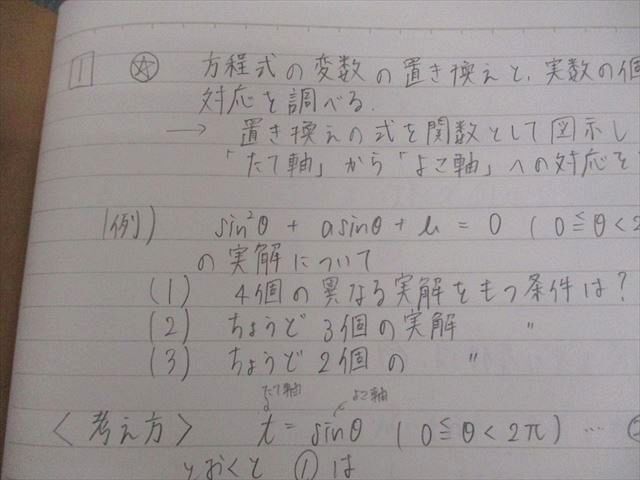 1 ☆ 方程式の変数の置き換えと、実数の個
対応を調べる.
→ 置き換えの式を関数として図示し
「たて軸」から「よこ軸」への対応を
(例) sin²θ + a sinθ + b = 0 (0≦θ<2
の実解について
(1) 4個の異なる実解をもつ条件は?
(2) ちょうど3個の実解 〃
(3) ちょうど2個の 〃
たて軸 よこ軸
<考え方> t = sinθ (0≦θ<2π) … ②
とおくと ①は